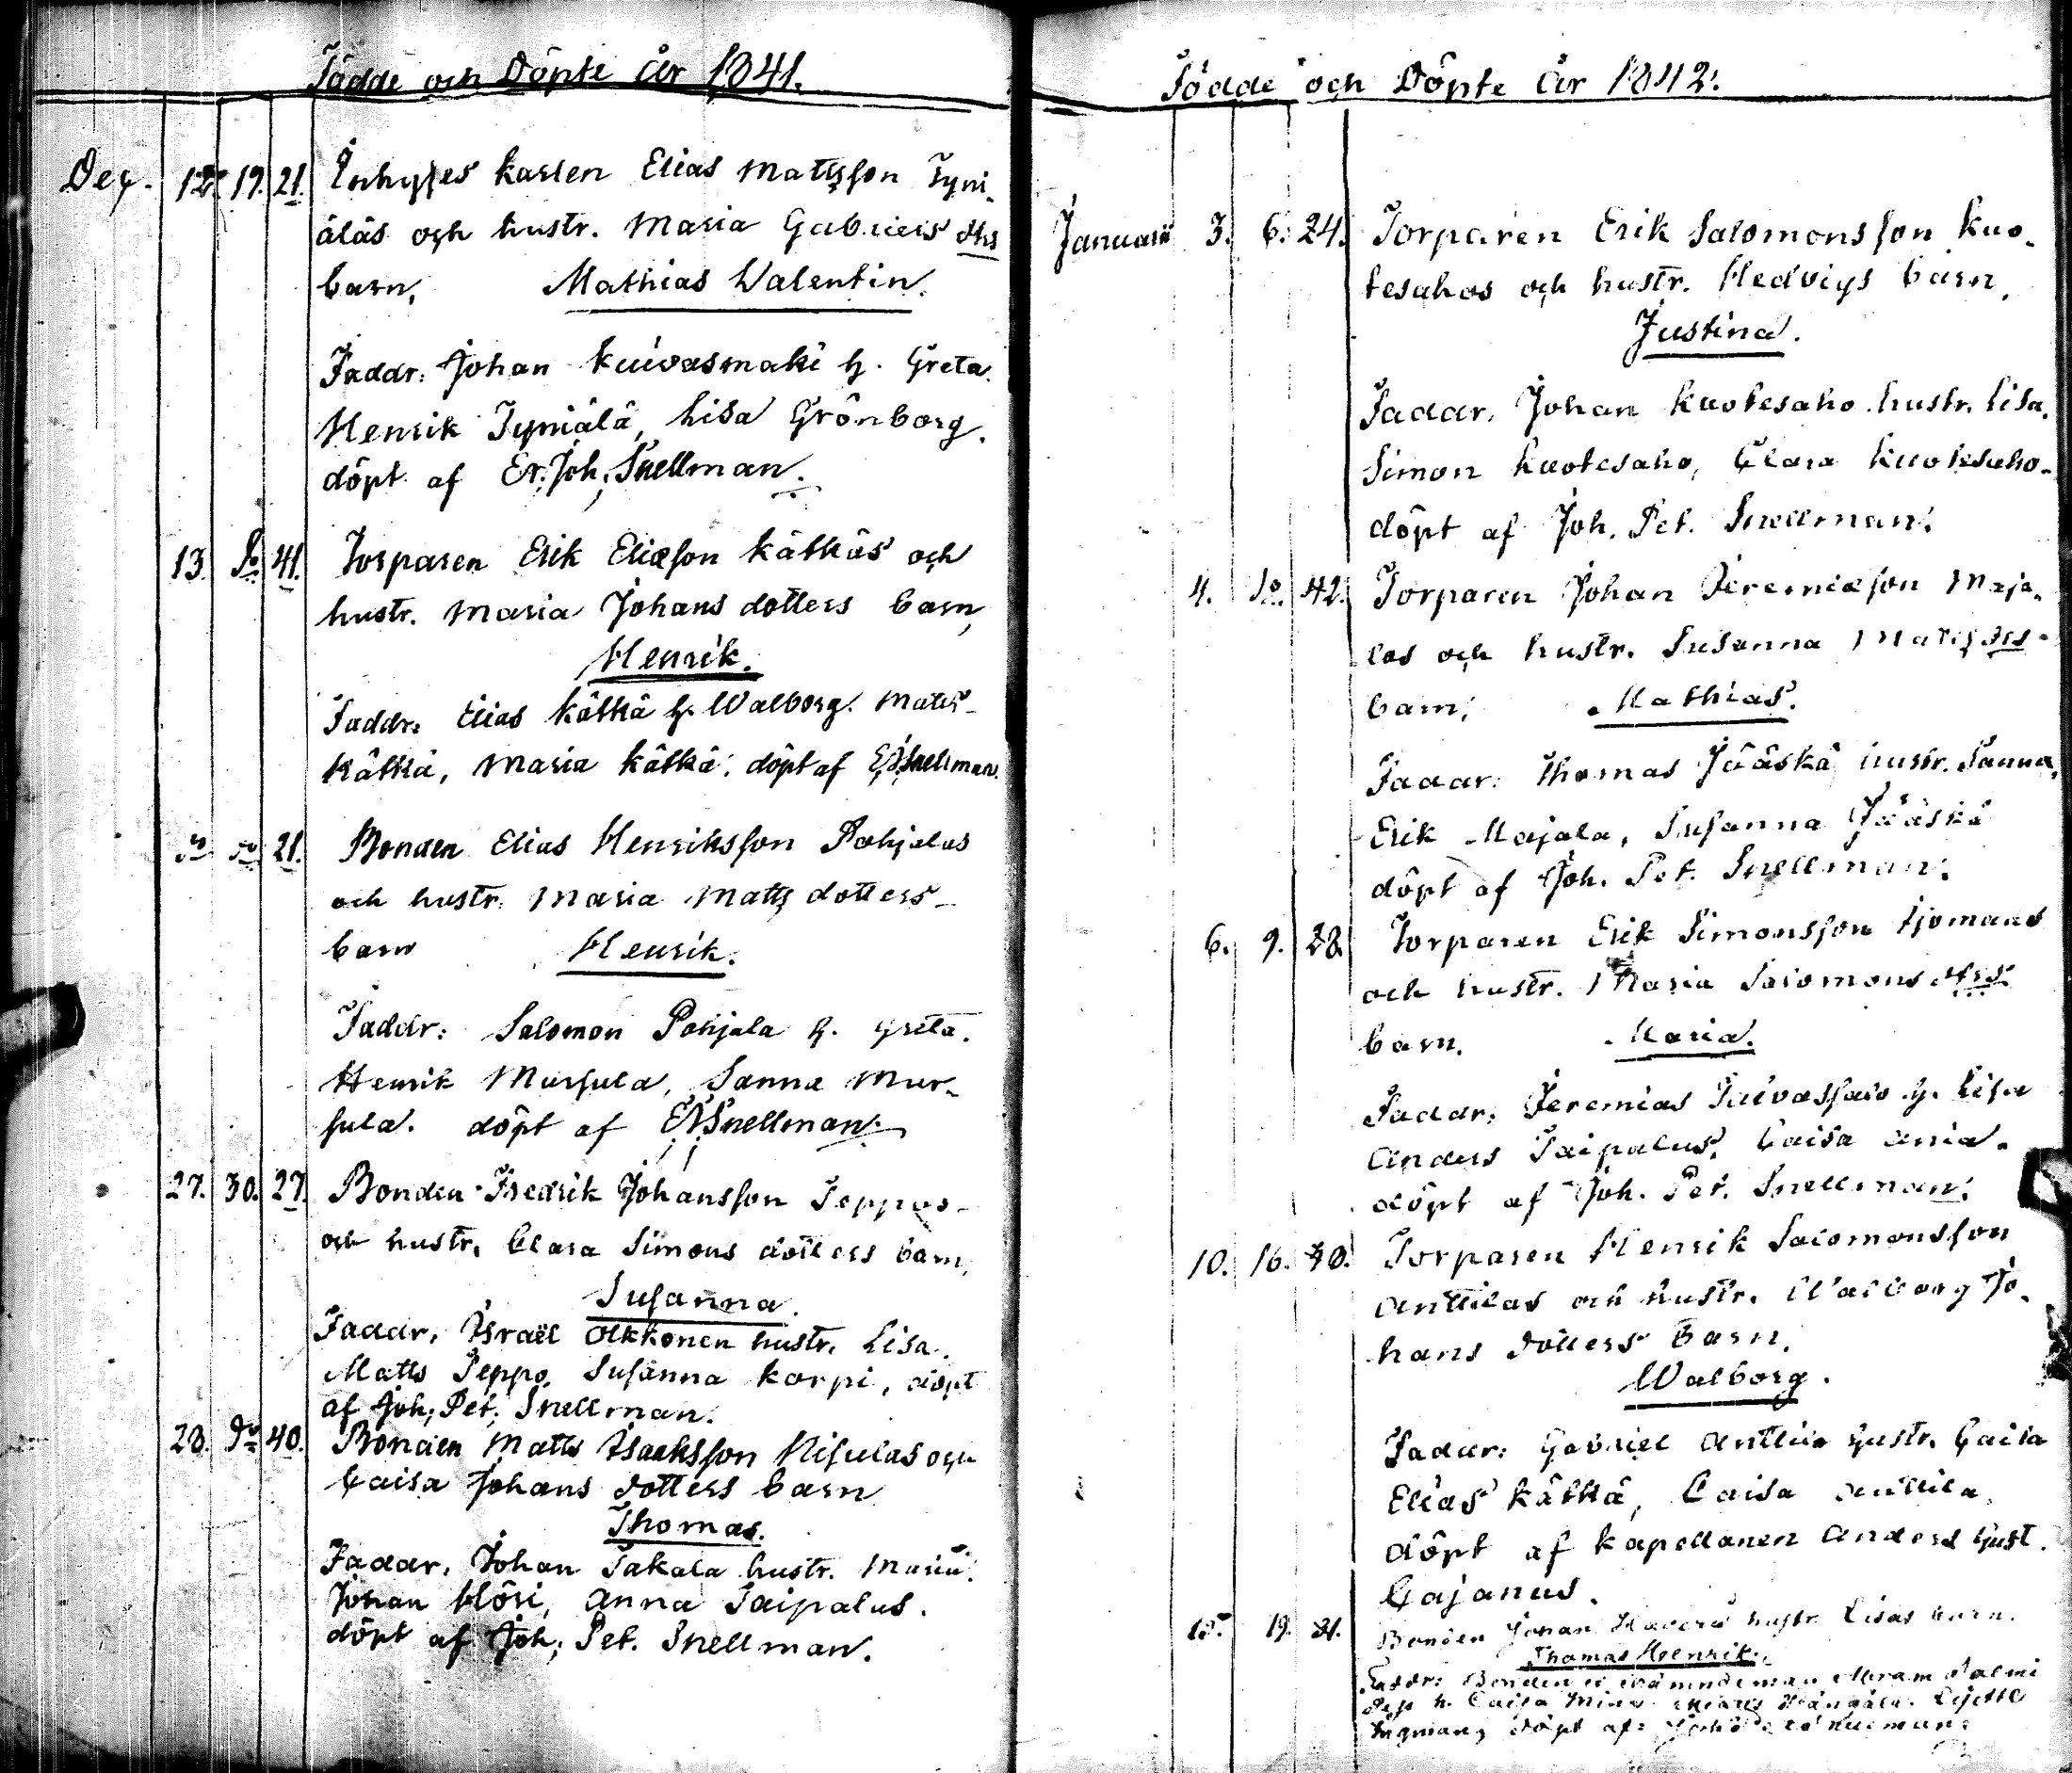 Födde och Döpte År 1841.
Dec. 12. 19. 21. Inhyses karlen Elias Mattsson Tyni-
äläs och hustr. Maria Gabriels dtrs
barn, Mathias Walentin.
Faddr: Johan Kuivasmäki h. Greta.
Henrik Tyniälä, Lisa Grönborg.
döpt af Er. Joh. Snellman.
13. Do 41. Torparen Erik Eliæson Kätkäs och
hustr. Maria Johans dotters barn,
Henrik.
Faddr: Elias Kätkä h. Walborg. Matts
Kätkä, Maria Kätkä. döpt af EJSnellman.
do do 21. Bonden Elias Henriksson Pohjalas
och hustr. Maria Matts dotters
barn Henrik.
Faddr: Salomon Pohjala h. Greta.
Henrik Mursula, Sanna Mur-
sula. döpt af EJSnellman.
27. 30. 27. Bonden Fredrik Johansson Seppos
och hustr. Clara Simons dotters barn,
Susanna.
Faddr. Israël Olkkonen hustr. Lisa.
Matts Seppo, Susanna Korpi, döpt
af Joh. Pet. Snellman.
28. Do 40. Bonden Matts Isacksson Nisulas och
Caisa Johans dotters barn
Thomas.
Faddr. Johan Takala hustr. Maria.
Johan Klöri, Anna Taipalus.
döpt af Joh. Pet. Snellman.
Födde och Döpte År 1842.
Januarii 3. 6. 24. Torparen Erik Salomonsson Kuo-
tesahos och hustr. Hedvigs barn,
Justina.
Faddr. Johan Kuotesaho hustr. Lisa.
Simon Kuotesaho, Clara Kuotesaho.
döpt af Joh. Pet. Snellman.
4. Do. 42. Torparen Johan Jeremiæson Maja-
las och hustr. Susanna Matts drs
barn, Mathias.
Faddr: Thomas Jääskä hustr. Sanna,
Erik Majala, Susanna Jääskä
döpt af Joh. Pet. Snellman.
6. 9. 28. Torparen Erik Simonsson
och hustr. Maria Salomons dtrs
barn. Maria.
Faddr. Jeremias h. Lisa
Anders Taipalus, Caisa
döpt af Joh. Pet. Snellman.
10. 16. 40. Torparen Henrik Salomonsson
Anttilas och hustr. Walborg Jo-
hans dotters barn,
Walborg.
Faddr: Gabriel Anttila hustr. Caisa
Elias Kätkä, Caisa Anttila,
döpt af Kapellanen Anders Gust.
Cajanus.
19. 31. Bonden Johan hustr. Lisas barn.
Thomas Henrik.
Faddr: Bonden Abram
h. Caisa
döpt af